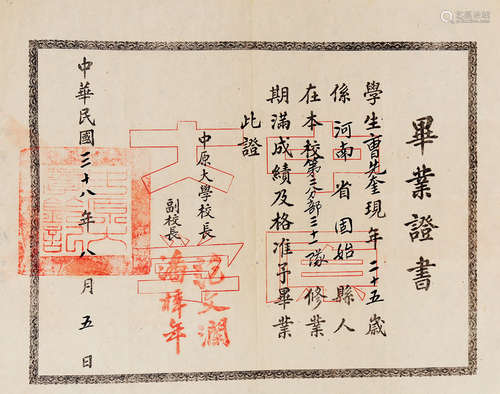 畢業證書
學生曹先奎現年二十五歲
係河南省固始縣人
在本校第二分部三十一隊修業
期滿成績及格准予畢業
此證
中原大學校長 范文瀾
副校長 潘梓年
中華民國三十八年八月五日